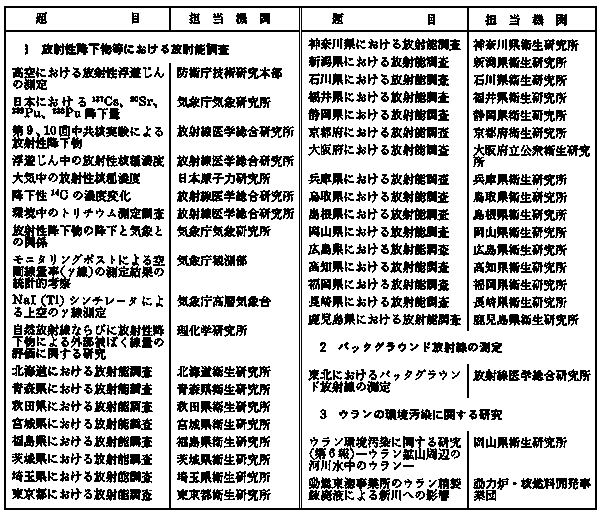 題 目 担 当 機 関
1 放射性降下物等における放射能調査
高空における放射性浮遊じん 防衛庁技術研究本部
の測定
日本における ¹³⁷Cs、⁹⁰Sr、 気象庁気象研究所
²³⁹Pu、²³⁸Pu 降下量
第9、10回中共核実験による 放射線医学総合研究所
放射性降下物
浮遊じん中の放射性核種濃度 放射線医学総合研究所
大気中の放射性核種濃度 日本原子力研究所
降下性 ¹⁴C の濃度変化 放射線医学総合研究所
環境中のトリチウム測定調査 放射線医学総合研究所
放射性降下物の降下と気象と 気象庁気象研究所
の関係
モニタリングポストによる空 気象庁観測部
間線量率(γ線)の測定結果の
統計的考察
NaI (Tl) シンチレータによ 気象庁高層気象台
る上空のγ線測定
自然放射線ならびに放射性降 理化学研究所
下物による外部被ばく線量の
評価に関する研究
北海道における放射能調査 北海道衛生研究所
青森県における放射能調査 青森県衛生研究所
秋田県における放射能調査 秋田県衛生研究所
宮城県における放射能調査 宮城県衛生研究所
福島県における放射能調査 福島県衛生研究所
茨城県における放射能調査 茨城県衛生研究所
埼玉県における放射能調査 埼玉県衛生研究所
東京都における放射能調査 東京都衛生研究所
題 目 担 当 機 関
神奈川県における放射能調査 神奈川県衛生研究所
新潟県における放射能調査 新潟県衛生研究所
石川県における放射能調査 石川県衛生研究所
福井県における放射能調査 福井県衛生研究所
静岡県における放射能調査 静岡県衛生研究所
京都府における放射能調査 京都府衛生研究所
大阪府における放射能調査 大阪府立公衆衛生研究
所
兵庫県における放射能調査 兵庫県衛生研究所
鳥取県における放射能調査 鳥取県衛生研究所
島根県における放射能調査 島根県衛生研究所
岡山県における放射能調査 岡山県衛生研究所
広島県における放射能調査 広島県衛生研究所
高知県における放射能調査 高知県衛生研究所
福岡県における放射能調査 福岡県衛生研究所
長崎県における放射能調査 長崎県衛生研究所
鹿児島県における放射能調査 鹿児島県衛生研究所
2 バックグラウンド放射線の測定
東北におけるバックグラウン 放射線医学総合研究所
ド放射線の測定
3 ウランの環境汚染に関する研究
ウラン環境汚染に関する研究 岡山県衛生研究所
(第6報)―ウラン鉱山周辺の
河川水中のウラン―
動燃東海事業所のウラン精製 動力炉・核燃料開発事
錬廃液による新川への影響 業団